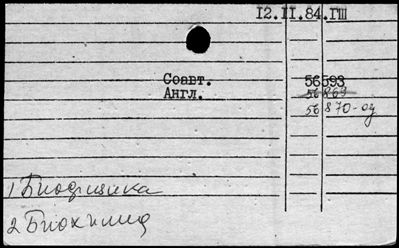 12.II.84.ГШ
Соавт. 56593
Англ. 56869
56870-од
1 Биофизика
2 Биохимия